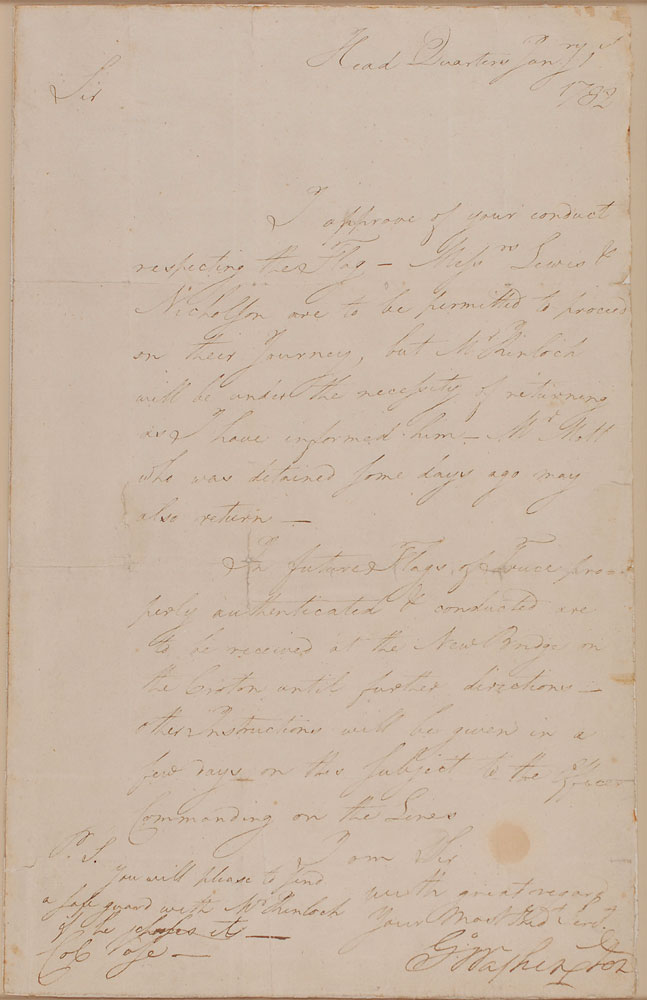 Head Quarters Jany 1st
1782
Sir
I approve of your conduct
respecting the Flag — Messrs Lewis &
Nicholson are to be permitted to proceed
on their Journeis, but Mr Kinloch
will be under the necessity of returning
as I have informed him — Mr Mott
who was detained some days ago may
also return —
In future Flags of Truce pro-
perly authenticated & conducted are
to be received at the New Bridge on
the Croton until further directions —
other Instructions will be given in a
few days on this subject to the Officer
Commanding on the Lines
I am Sir
with great regard
Your Most Obed Servt
Go Washington
P. S.
You will please to send
a safe guard with Mr Kinloch
if he chuses it —
Col